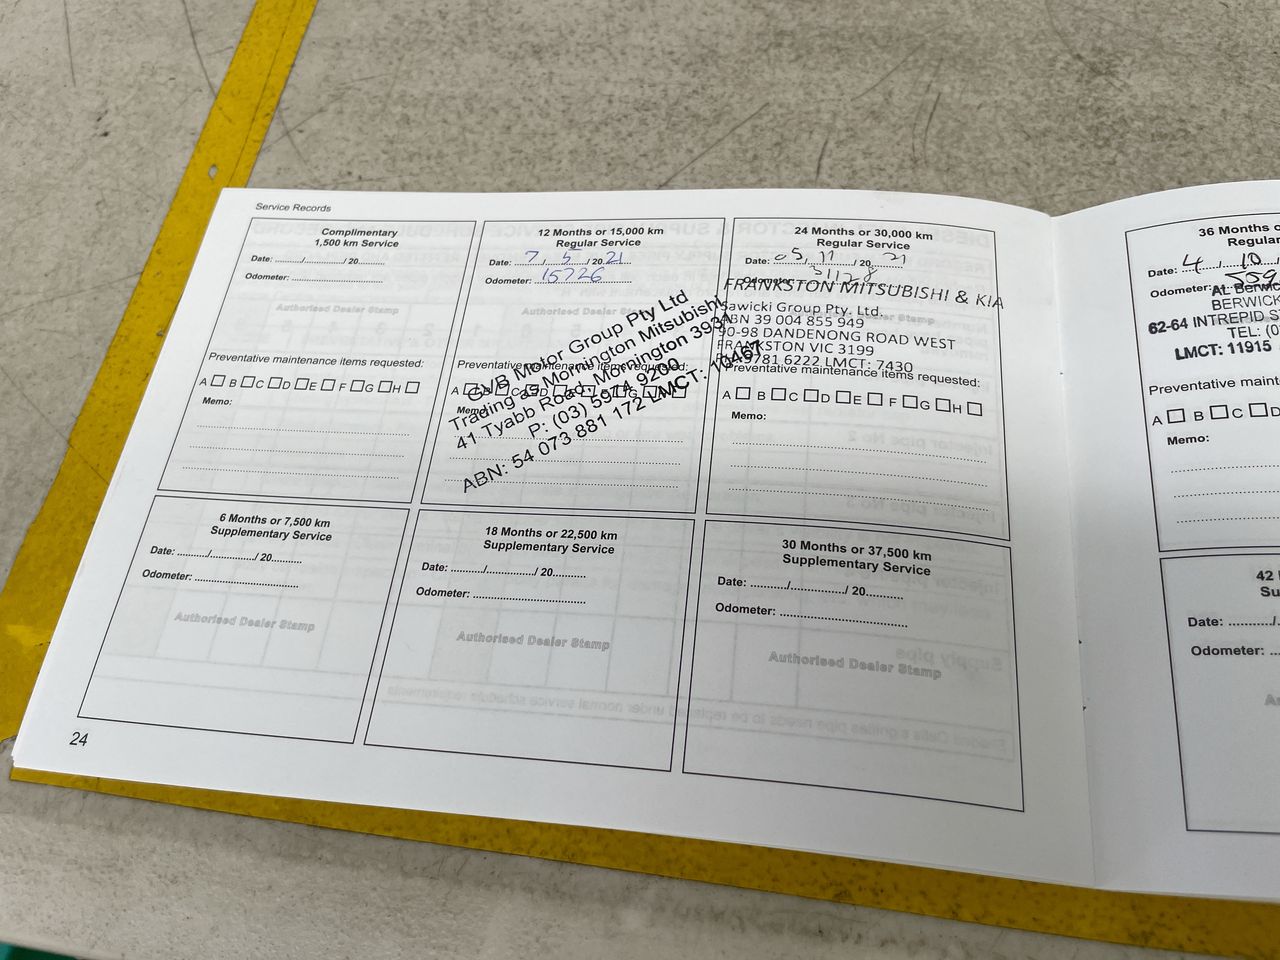 Service Records
Complimentary
1,500 km Service
Date: ........./............./ 20..........
Odometer: ..................................
Authorised Dealer Stamp
Preventative maintenance items requested:
A B C D E F G H
Memo:
12 Months or 15,000 km
Regular Service
Date: 7 / 5 / 20 21
Odometer: 15726
GVB Motor Group Pty Ltd
Trading as Mornington Mitsubishi
41 Tyabb Road, Mornington 3931
P: (03) 5974 9200
ABN: 54 073 881 172 LMCT: 10467
Preventative maintenance items requested:
A B C D E F G H
Memo:
24 Months or 30,000 km
Regular Service
Date: 05, 11 / 20 21
Odometer: 31128
FRANKSTON MITSUBISHI & KIA
Sawicki Group Pty. Ltd.
ABN 39 004 855 949
90-98 DANDENONG ROAD WEST
FRANKSTON VIC 3199
9781 6222 LMCT: 7430
Preventative maintenance items requested:
A B C D E F G H
Memo:
36 Months o
Regular
Date: 4 , 10
Odometer:
At Berwic
BERWICK
62-64 INTREPID S
TEL: (0
LMCT: 11915
Preventative maint
A B C D
Memo:
6 Months or 7,500 km
Supplementary Service
Date: ........../................/ 20..........
Odometer: ..................................
Authorised Dealer Stamp
18 Months or 22,500 km
Supplementary Service
Date: ........../................/ 20..........
Odometer: ..................................
Authorised Dealer Stamp
30 Months or 37,500 km
Supplementary Service
Date: ........../................/ 20..........
Odometer: ..................................
Authorised Dealer Stamp
42
Su
Date: ........./
Odometer: ...
24